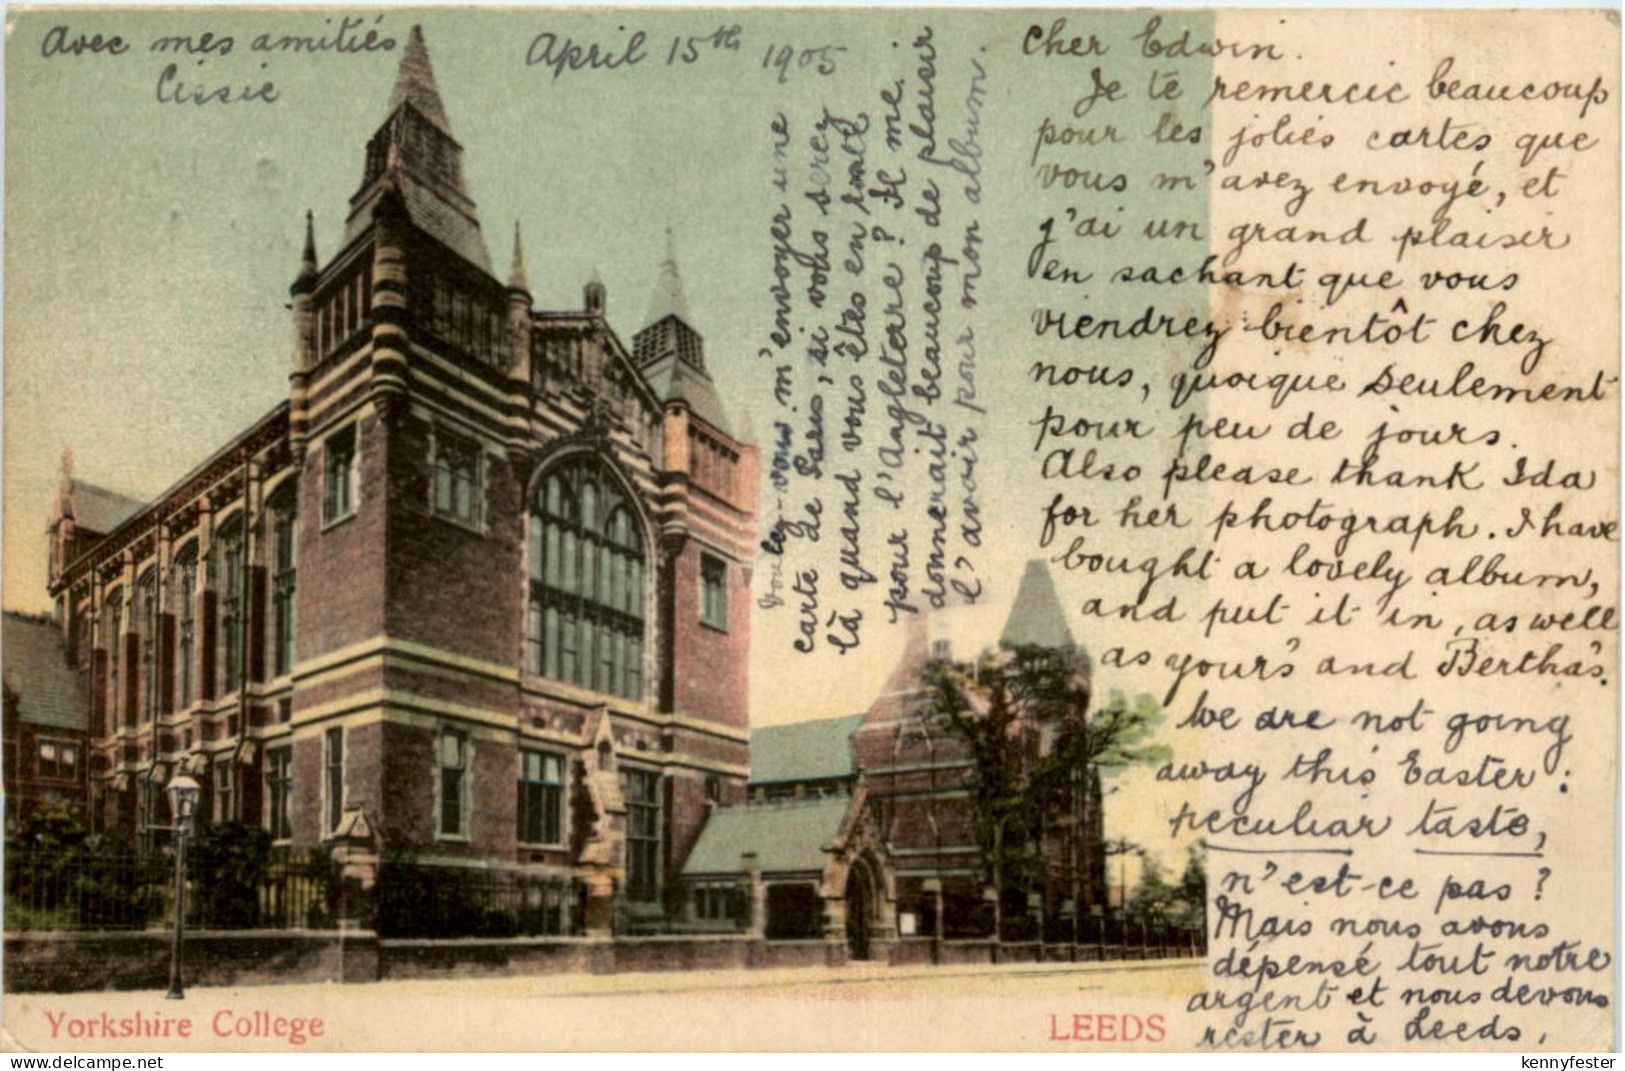 Avec mes amitiés
Cissie
April 15th 1905
Cher Edwin.
Je te remercie beaucoup
pour les jolies cartes que
vous m'avez envoyé, et
j'ai un grand plaisir
en sachant que vous
viendrez bientôt chez
nous, quoique seulement
pour peu de jours.
Also please thank Ida
for her photograph. I have
bought a lovely album,
and put it in, as well
as your's and Bertha's.
We are not going
away this Easter:
peculiar taste,
n'est-ce pas?
Mais nous avons
dépensé tout notre
argent et nous devons
rester à Leeds.
Voulez-vous m'envoyer une
carte de Paris, si vous serez
là quand vous êtes en
pour l'Angleterre? Il me
donnerait beaucoup de plaisir
l'avoir pour mon album.
Yorkshire College
LEEDS
kennyfester